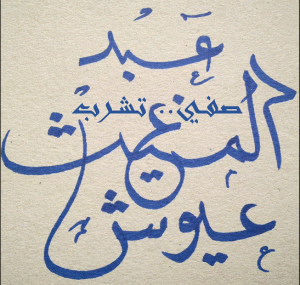 عبد
صفي تشرب
المغيث
عيوش